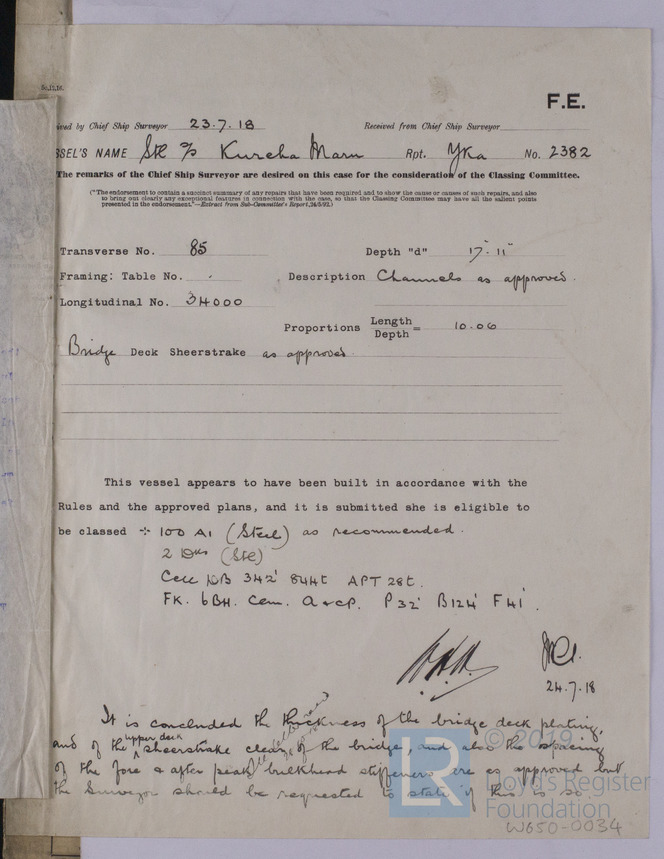 F.E.
ived by Chief Ship Surveyor 23.7.18 Received from Chief Ship Surveyor
SSEL'S NAME Stl S/S Kureha Maru Rpt. Yka No. 2382
The remarks of the Chief Ship Surveyor are desired on this case for the consideration of the Classing Committee.
("The endorsement to contain a succinct summary of any repairs that have been required and to show the cause or causes of such repairs, and also
to bring out clearly any exceptional features in connection with the case, so that the Classing Committee may have all the salient points
presented in the endorsement."—Extract from Sub-Committee's Report,
Transverse No. 85 Depth "d" 17'-11"
Framing: Table No. - Description Channels as approved.
Longitudinal No. 34000
Proportions Length
Depth = 10.06
Bridge Deck Sheerstrake as approved.
This vessel appears to have been built in accordance with the
Rules and the approved plans, and it is submitted she is eligible to
be classed + 100 A1 (Steel) as recommended.
2 Dks (Stl)
Cell DB 342' 844t APT 28t.
FK. 6BH. Cem. A & CP. P 32' B124' F 41'.
24.7.18
It is concluded the thickness of the bridge deck plating,
and of the upper deck sheerstrake clear of the bridge, and also the spacing
of the fore & after peak bulkhead stiffeners are as approved but
the Surveyor should be requested to state if this is so
© 2019
LR
Lloyd's Register
Foundation
W650-0034